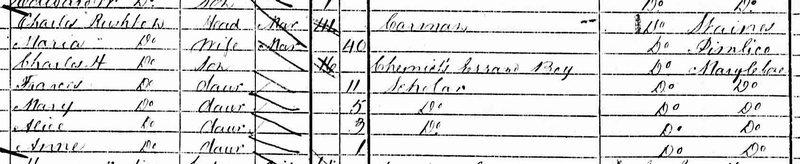 Do Son Do Do
Charles Head Mar 44 Carman Do Staines
Maria Do Wife Mar 40 Do Pimlico
Charles H Do Son 16 Chemist's Errand Boy Do Marylebone
Frances Do Daur 11 Scholar Do Do
Mary Do Daur 5 Do Do Do
Alice Do Daur 3 Do Do Do
Anne Do Daur 1 Do Do